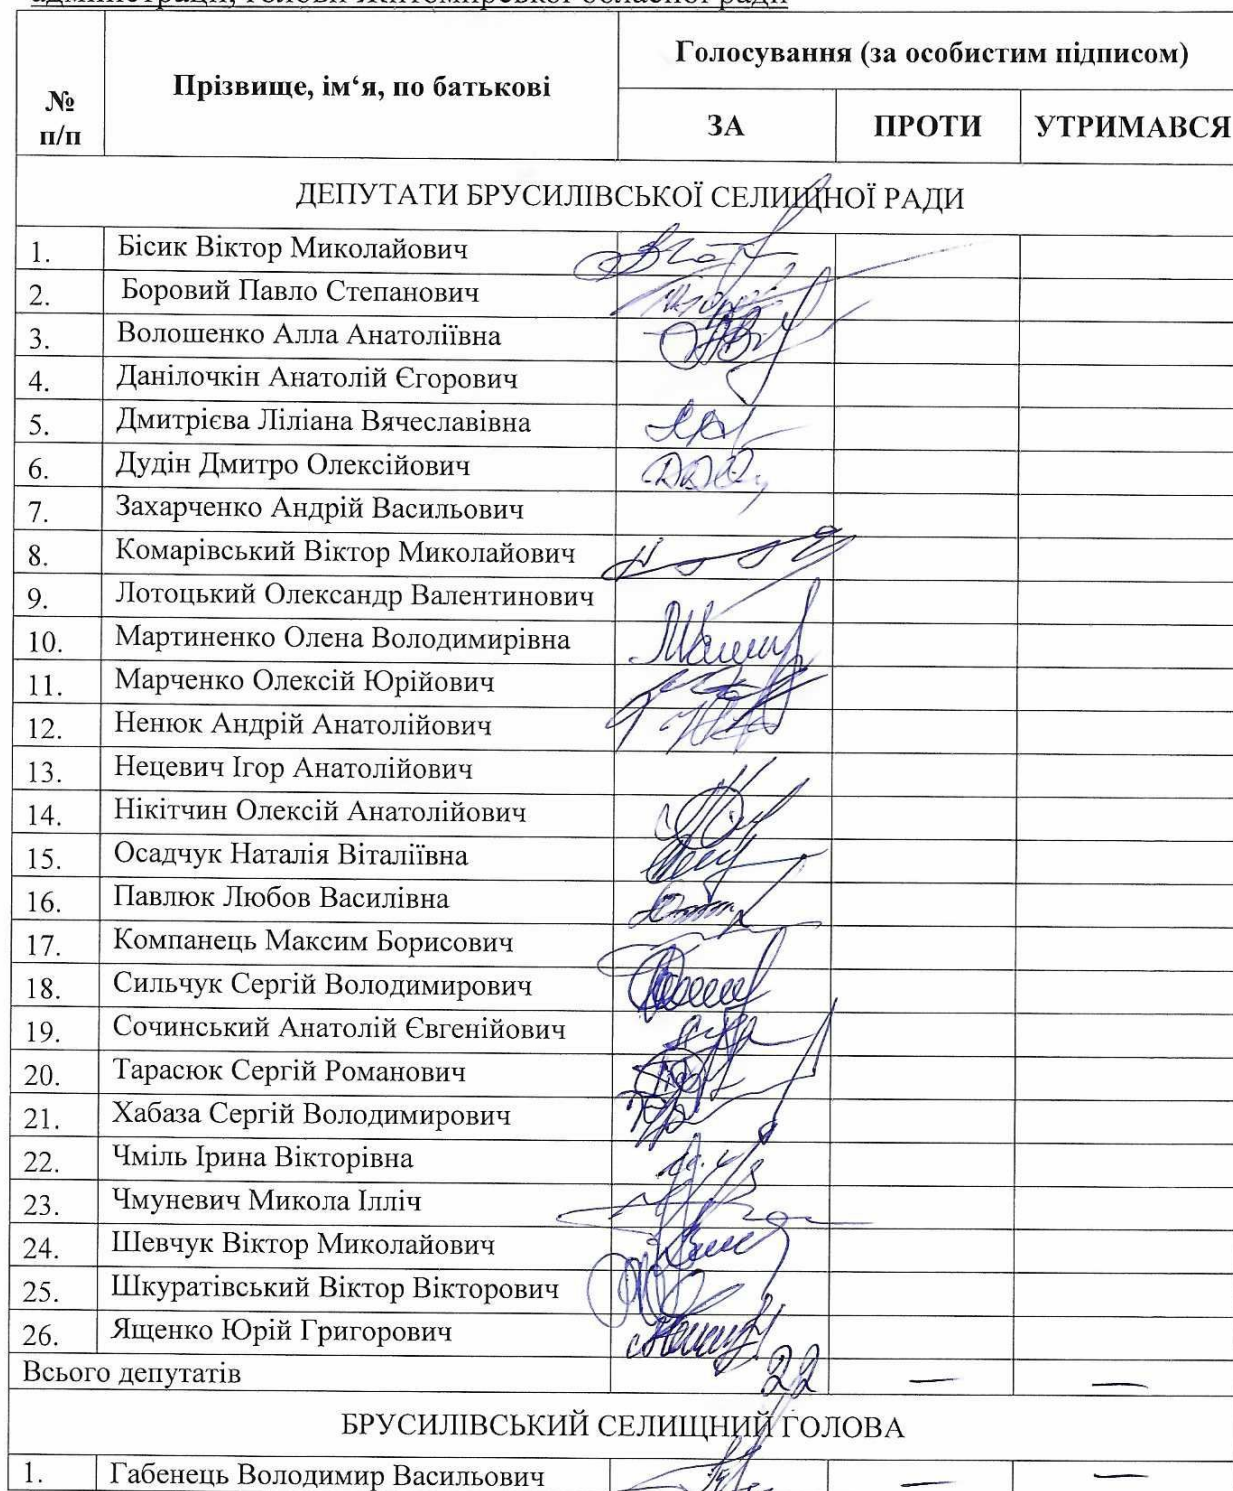 адміністрації, голови Житомирської обласної ради
№ п/п
Прізвище, ім‘я, по батькові
Голосування (за особистим підписом)
ЗА ПРОТИ УТРИМАВСЯ
ДЕПУТАТИ БРУСИЛІВСЬКОЇ СЕЛИЩНОЇ РАДИ
1. Бісик Віктор Миколайович
2. Боровий Павло Степанович
3. Волошенко Алла Анатоліївна
4. Данілочкін Анатолій Єгорович
5. Дмитрієва Ліліана Вячеславівна
6. Дудін Дмитро Олексійович
7. Захарченко Андрій Васильович
8. Комарівський Віктор Миколайович
9. Лотоцький Олександр Валентинович
10. Мартиненко Олена Володимирівна
11. Марченко Олексій Юрійович
12. Ненюк Андрій Анатолійович
13. Нецевич Ігор Анатолійович
14. Нікітчин Олексій Анатолійович
15. Осадчук Наталія Віталіївна
16. Павлюк Любов Василівна
17. Компанець Максим Борисович
18. Сильчук Сергій Володимирович
19. Сочинський Анатолій Євгенійович
20. Тарасюк Сергій Романович
21. Хабаза Сергій Володимирович
22. Чміль Ірина Вікторівна
23. Чмуневич Микола Ілліч
24. Шевчук Віктор Миколайович
25. Шкуратівський Віктор Вікторович
26. Ященко Юрій Григорович
Всього депутатів 22 — —
БРУСИЛІВСЬКИЙ СЕЛИЩНИЙ ГОЛОВА
1. Габенець Володимир Васильович — —